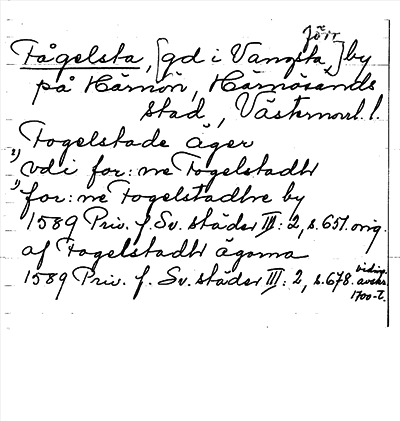 Jörr
Fågelsta, [gd i Vangsta,] by
på Härnön, Härnösands
stad, Västernorrl. l.
Fogelstade äger
1) vdi for:ne Fogelstadhr
1) for:ne Fogelstadhre by
1589 Priv. f. Sv. städer III: 2, s. 651. orig.
af Fogelstadhr ägorna
1589 Priv. f. Sv. städer III: 2, s. 678. vidim. avskr. 1700-t.